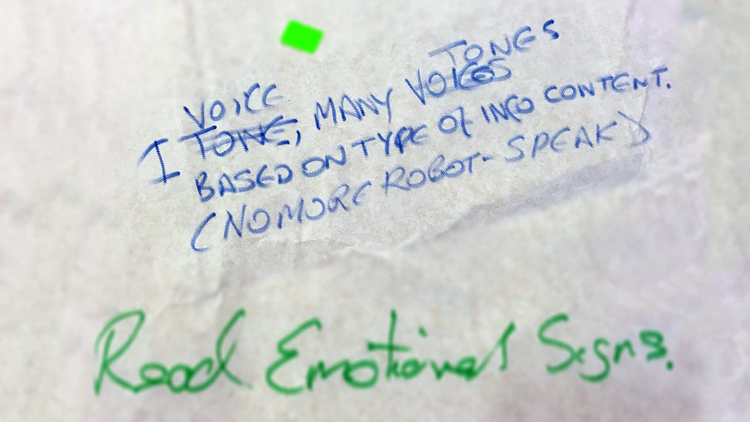 VOICE TONES
I TONE, MANY VOICES
BASED ON TYPE OF INFO CONTENT.
(NO MORE ROBOT-SPEAK)
Read Emotional Signs.